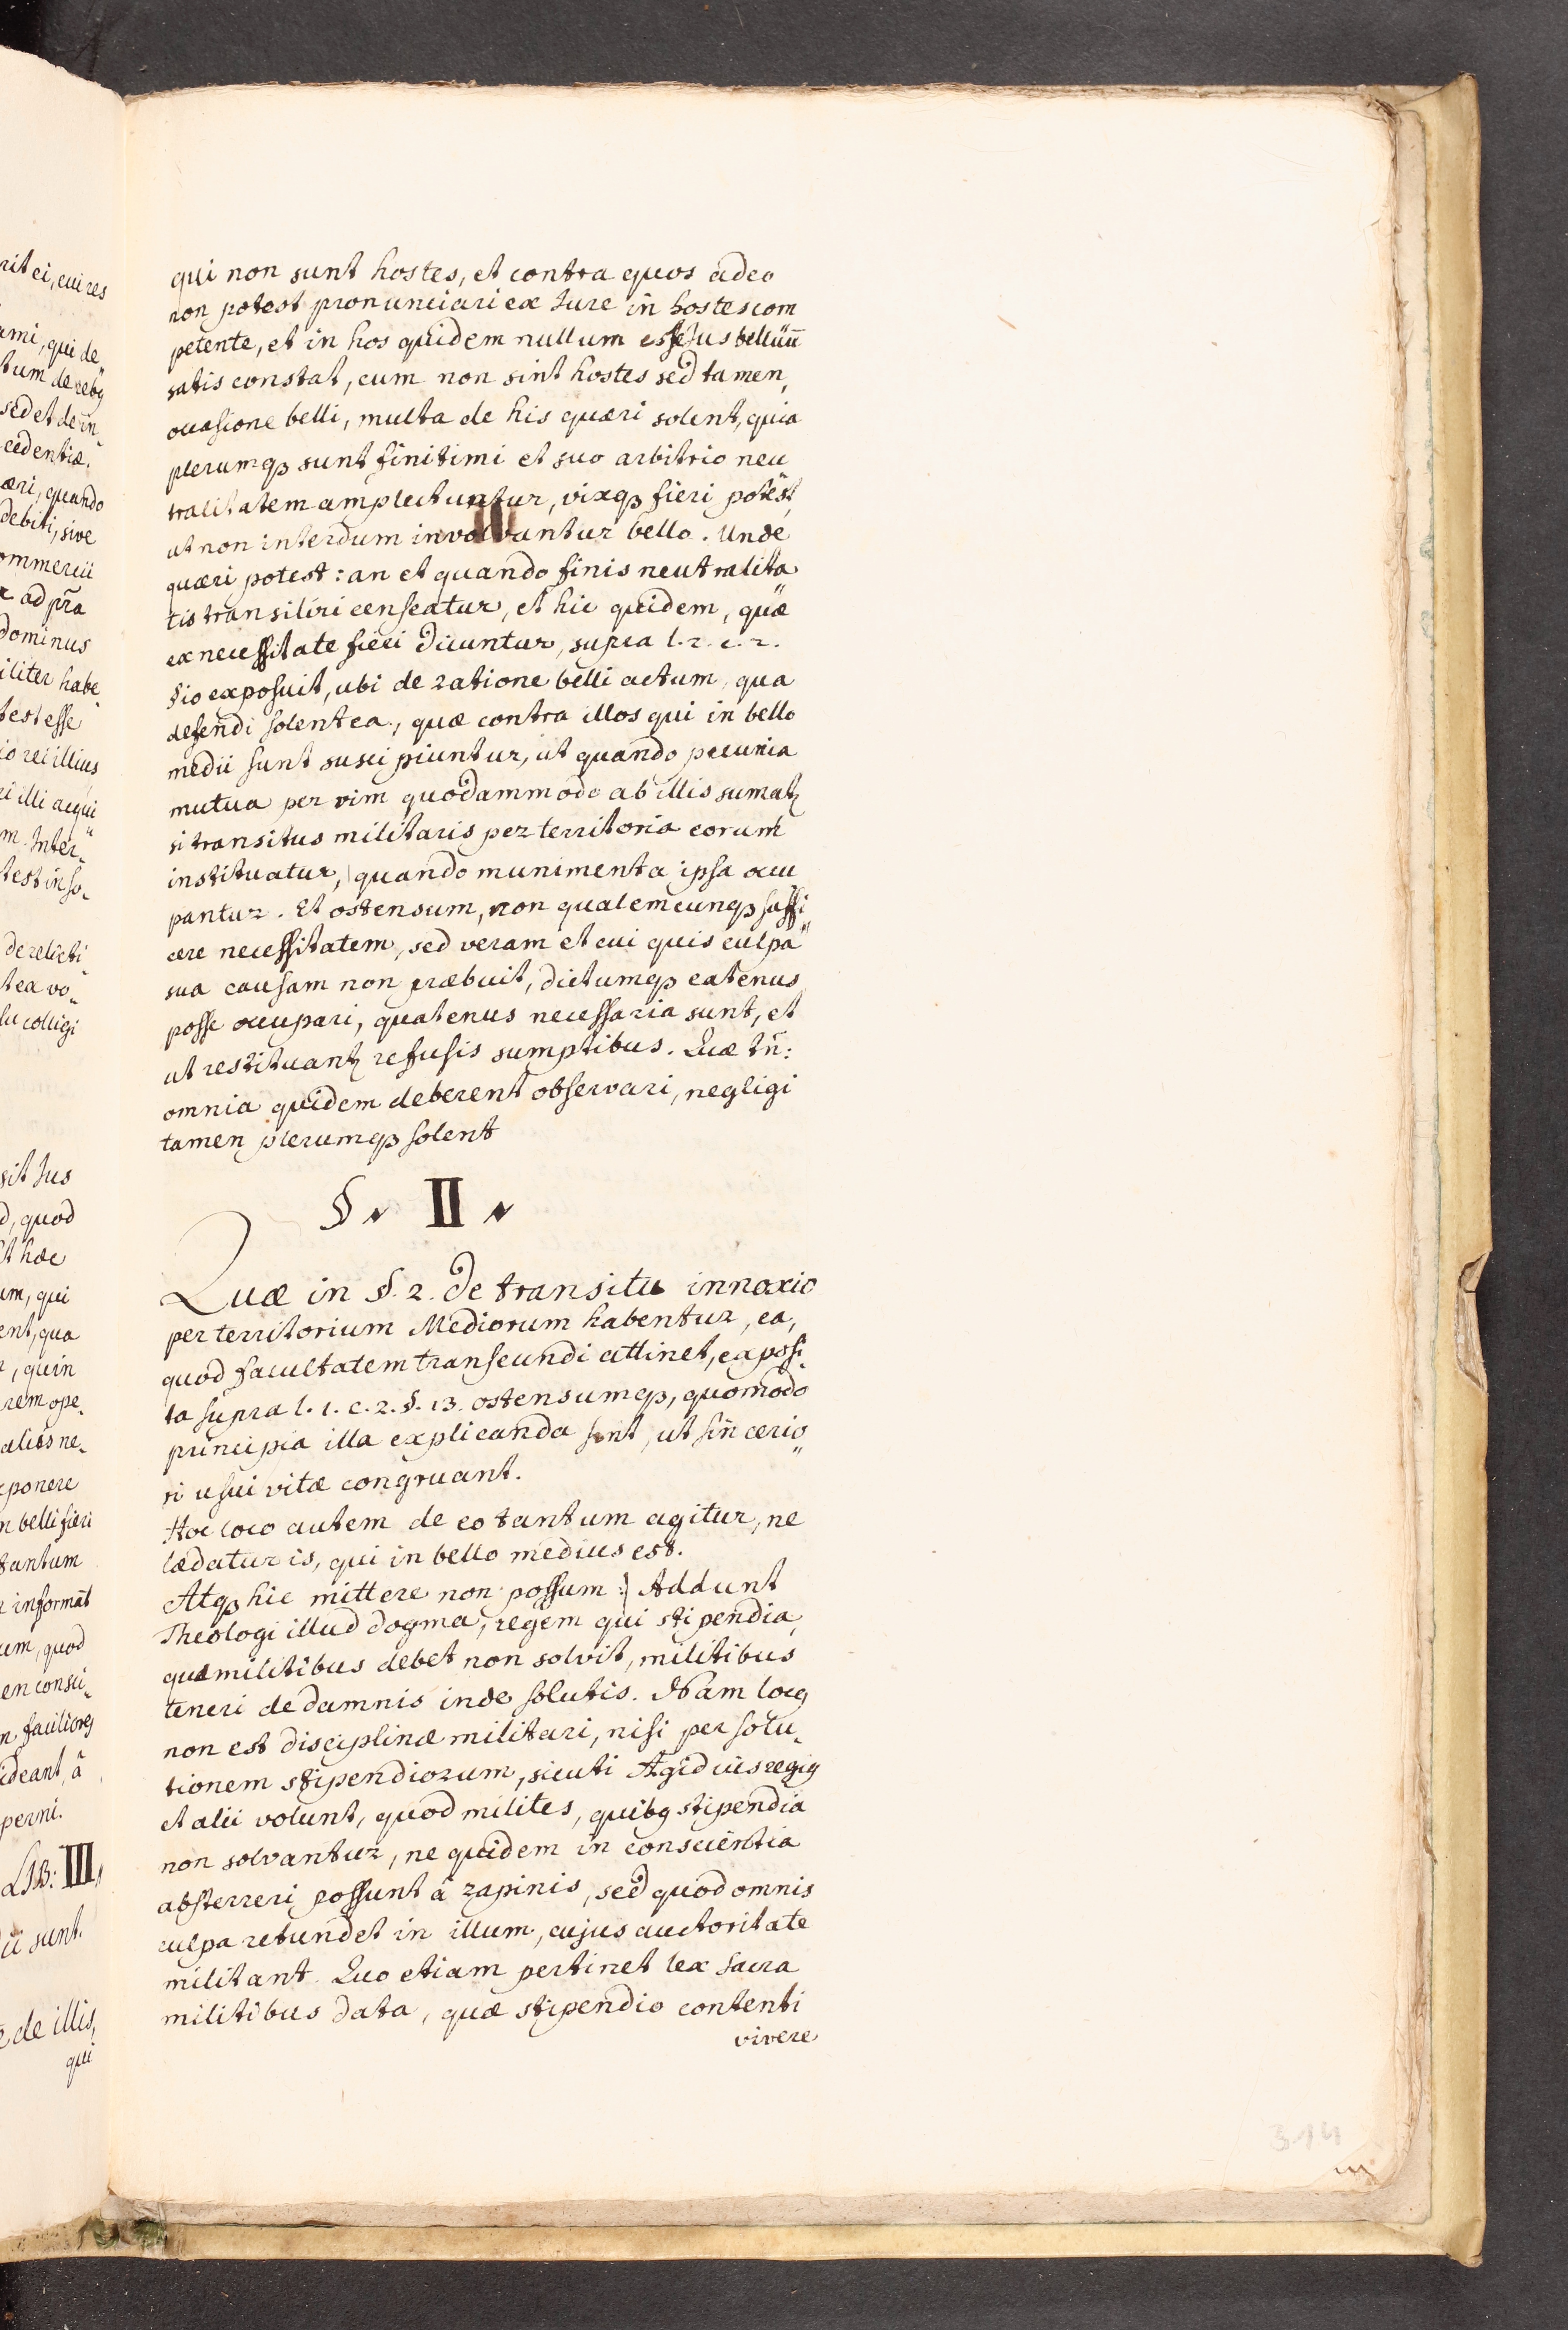 qui non sunt hostes, et contra quos adeo
non potest pronunciari ex Jure in hostes com
petente, et in hos quidem nullum esse Jus bellicū
satis constat, cum non sint hostes sed tamen,
occasione belli, multa de his quæri solent, quia
plerumqꝫ sunt finitimi et suo arbitrio neu
tralitatem amplectuntur, vixqꝫ fieri potest,
ut non interdum involvantur bello. Unde
quæri potest: an et quando finis neutralita
tis transiliri censeatur, et hic quidem, quæ
ex necessitate fieri dicuntur, supra l. 2. c. 2.
§ 10 exposuit, ubi de ratione belli actum, qua
defendi solent ea, quæ contra illos qui in bello
medii sunt suscipiuntur, ut quando pecunia
mutua per vim quodammodo ab illis sumatꝫ
si transitus militaris per territoria eorum
instituatur, quando munimenta ipsa occu
pantur. Et ostensum, non qualemcunqꝫ suffi
cere necessitatem, sed veram et cui quis culpa
sua causam non præbuit, dictumqꝫ eatenus
posse occupari, quatenus necessaria sunt, et
ut restituantꝫ refusis sumptibus. Quæ tn̄:
omnia quidem deberent observari, negligi
tamen plerumqꝫ solent
§ II
Quæ in §. 2. de transitu innoxio
per territorium Mediorum habentur, ea,
quod facultatem transeundi attinet, exposi
ta supra l. 1. c. 2. §. 13. ostensumqꝫ, quomodo
principia illa explicanda sint, ut sincerio
ri usui vitæ congruant.
Hoc loco autem de eo tantum agitur, ne
lædatur is, qui in bello medius est.
Atqꝫ hic mittere non possum: Addunt
Theologi illud dogma, regem qui stipendia,
quæ militibus debet non solvit, militibus
teneri de damnis inde solutis. Nam locꝯ
non est disciplinæ militari, nisi per solu
tionem stipendiorum, sicuti Ægidius regiꝯ
et alii volunt, quod milites, quibꝯ stipendia
non solvantur, ne quidem in conscientia
absterreri possunt â rapinis, sed quod omnis
culpa retundet in illum, cujus auctoritate
militant. Quo etiam pertinet lex sacra
militibus data, quæ stipendio contenti
vivere
314